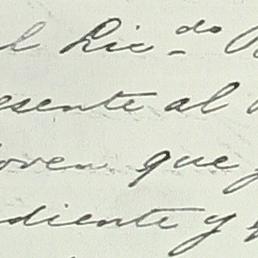 el Lic.do
esente al
oven que
diente y